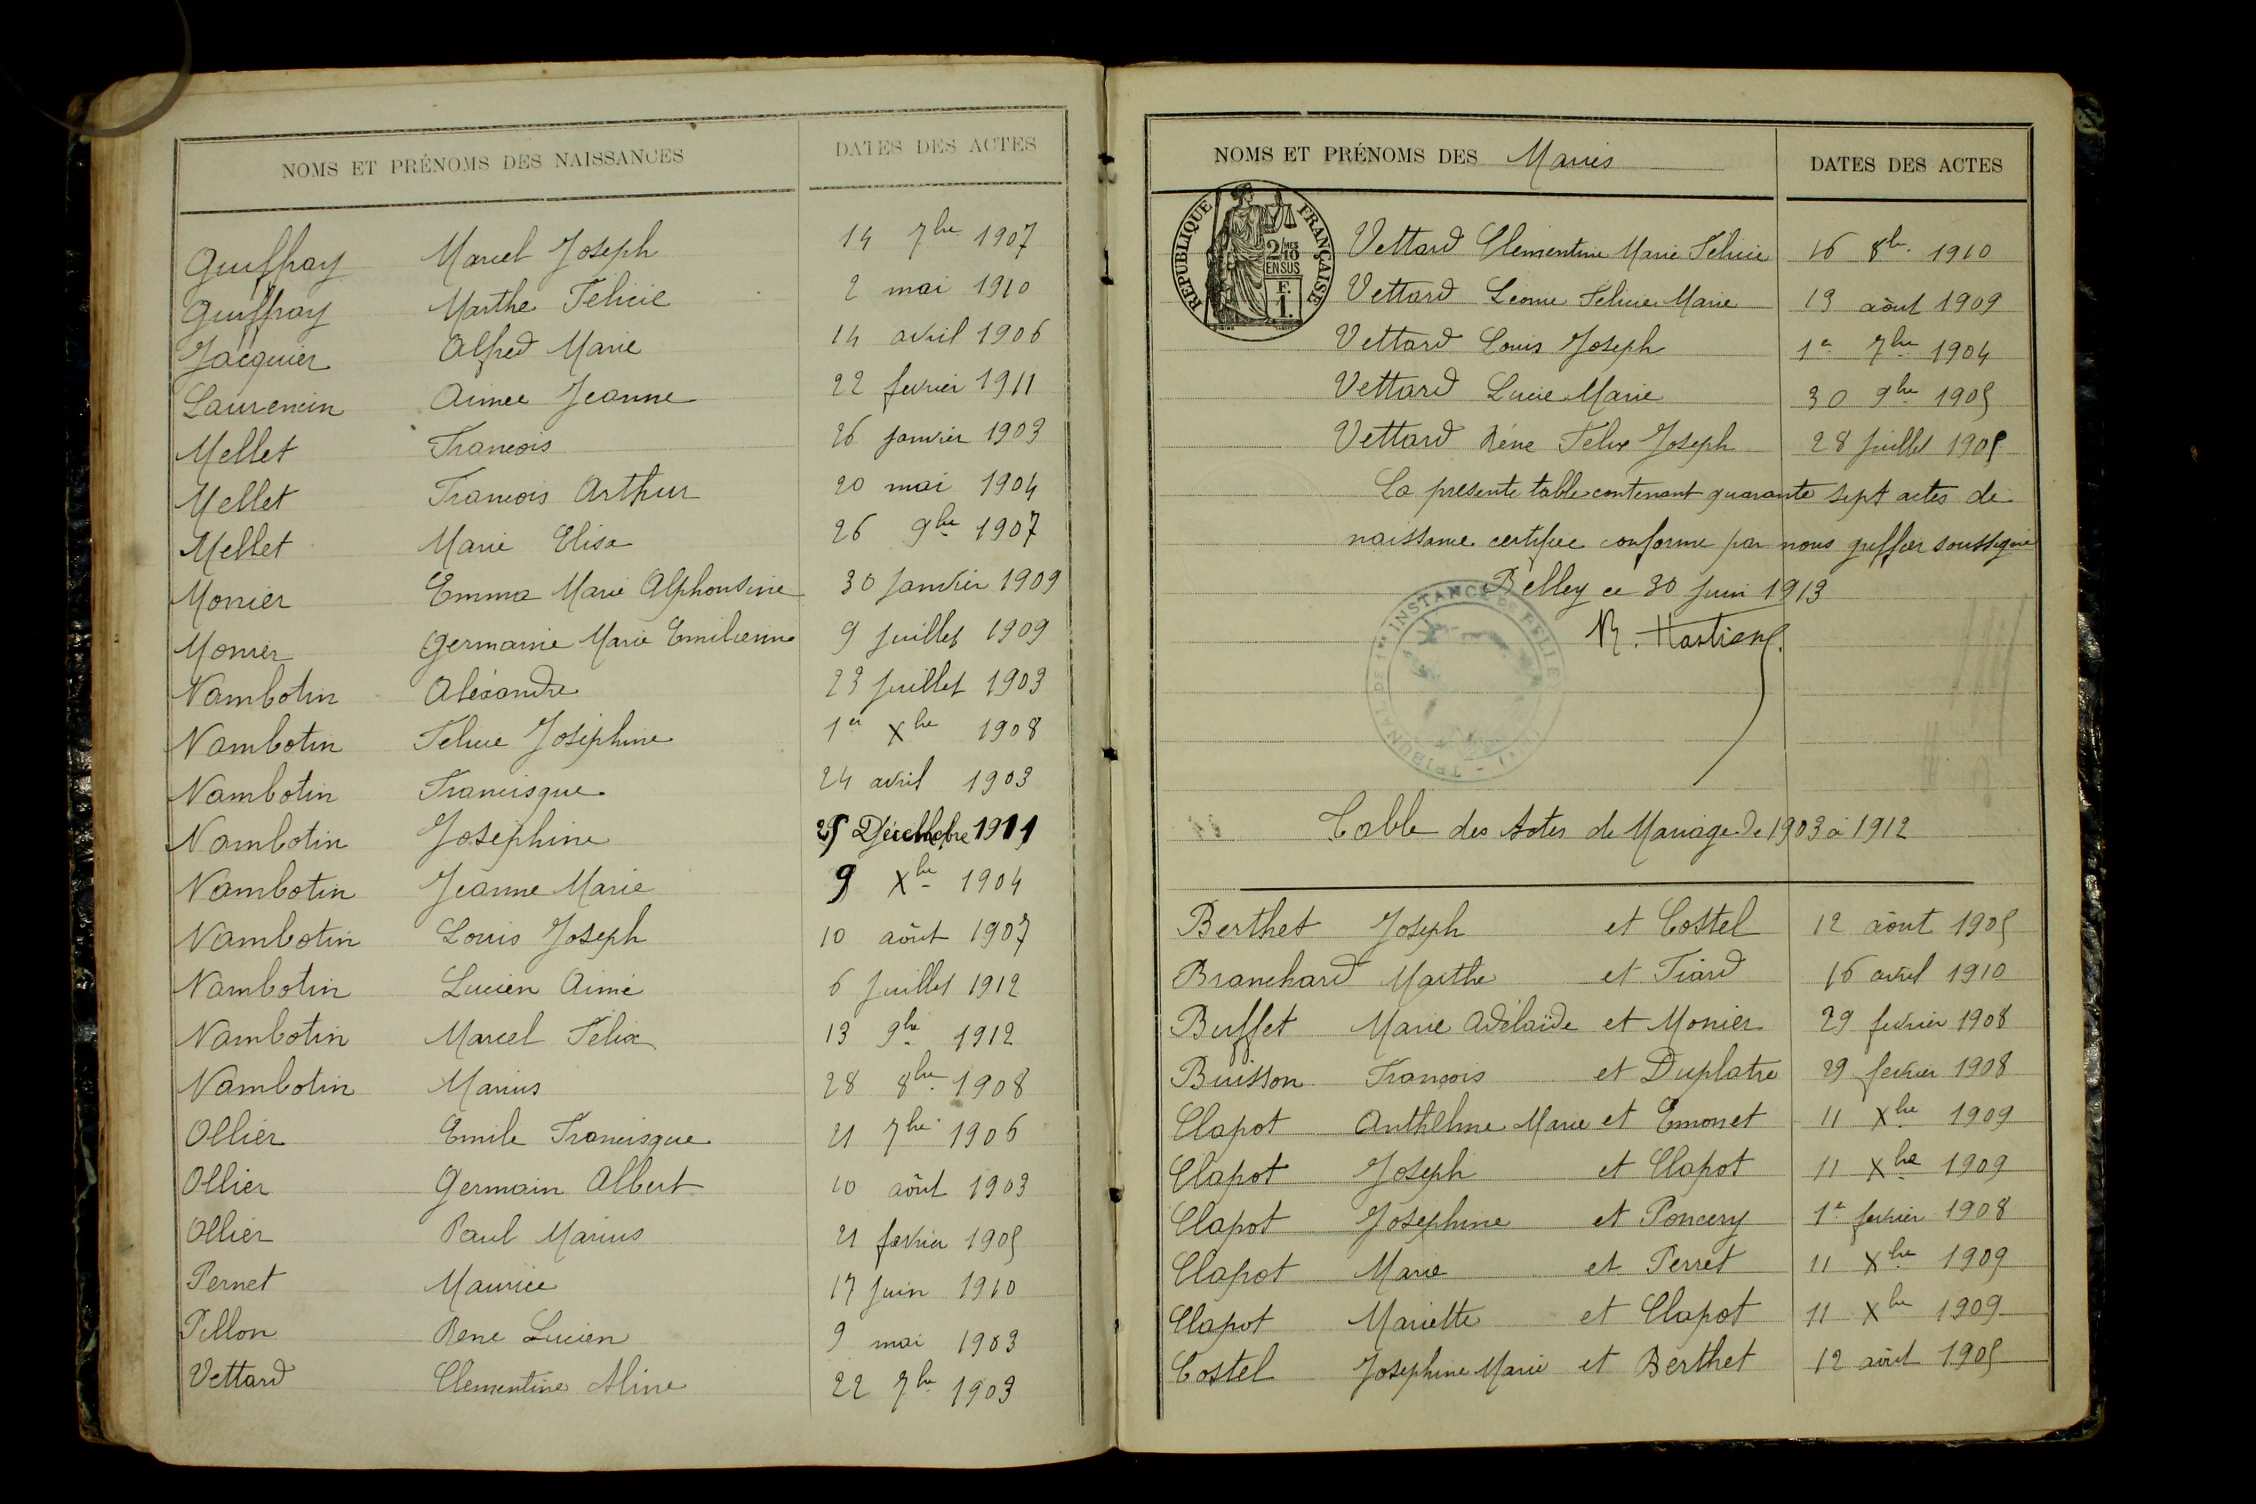 NOMS ET PRÉNOMS DES NAISSANCES DATES DES ACTES
Guiffray Marcel Joseph 14 7bre 1907
Guiffray Marthe Felicie 2 mai 1910
Jacquier Alfred Marie 14 avril 1906
Laurencin Aimée Jeanne 22 fevrier 1911
Mellet Francois 26 janvier 1903
Mellet Francois Arthur 20 mai 1904
Mellet Marie Elisa 26 9bre 1907
Monier Emma Marie Alphonsine 30 janvier 1909
Monier Germaine Marie Emilienne 9 juillet 1909
Nambotin Aléxandre 23 juillet 1903
Nambotin Felicie Joséphine 1er Xbre 1908
Nambotin Francisque 24 avril 1903
Nambotin Joséphine 25 Décembre 1911
Nambotin Jeanne Marie 9 Xbre 1904
Nambotin Louis Joseph 10 aôut 1907
Nambotin Lucien Aimé 6 juillet 1912
Nambotin Marcel Félix 13 9bre 1912
Nambotin Marius 28 8bre 1908
Ollier Emile Francisque 21 7bre 1906
Ollier Germain Albert 10 aôut 1903
Ollier Paul Marius 21 fevrier 1905
Pernet Maurice 17 juin 1910
Pillon Rene Lucien 9 mai 1903
Vettard Clementine Aline 22 7bre 1903
NOMS ET PRÉNOMS DES Mariés DATES DES ACTES
RÉPUBLIQUE FRANÇAISE
2/10 MES
EN SUS
F.
1.
Vettard Clementine Marie Félicie 16 8bre 1910
Vettard Léonie Felicie Marie 13 aôut 1909
Vettard Louis Joseph 1er 7bre 1904
Vettard Lucie Marie 30 9bre 1905
Vettard Réne Felix Joseph 28 juillet 1905
La presente table contenant quarante sept actes de
naissance certifiee conforme par nous greffier soussigné
Belley ce 30 juin 1913
TRIBUNAL DE 1re INSTANCE DE BELLEY
Table des Actes de Mariage de 1903 à 1912
Berthet Joseph et Costel 12 aôut 1905
Branchard Marthe et Tiard 16 avril 1910
Buffet Marie Adélaïde et Monier 29 fevrier 1908
Buisson François et Duplatre 29 fevrier 1908
Clapot Anthelme Marie et Emonet 11 Xbre 1909
Clapot Joseph et Clapot 11 Xbre 1909
Clapot Joséphine et Poncery 1er fevrier 1908
Clapot Marie et Perret 11 Xbre 1909
Clapot Mariette et Clapot 11 Xbre 1909
Costel Josephine Marie et Berthet 12 aôut 1905